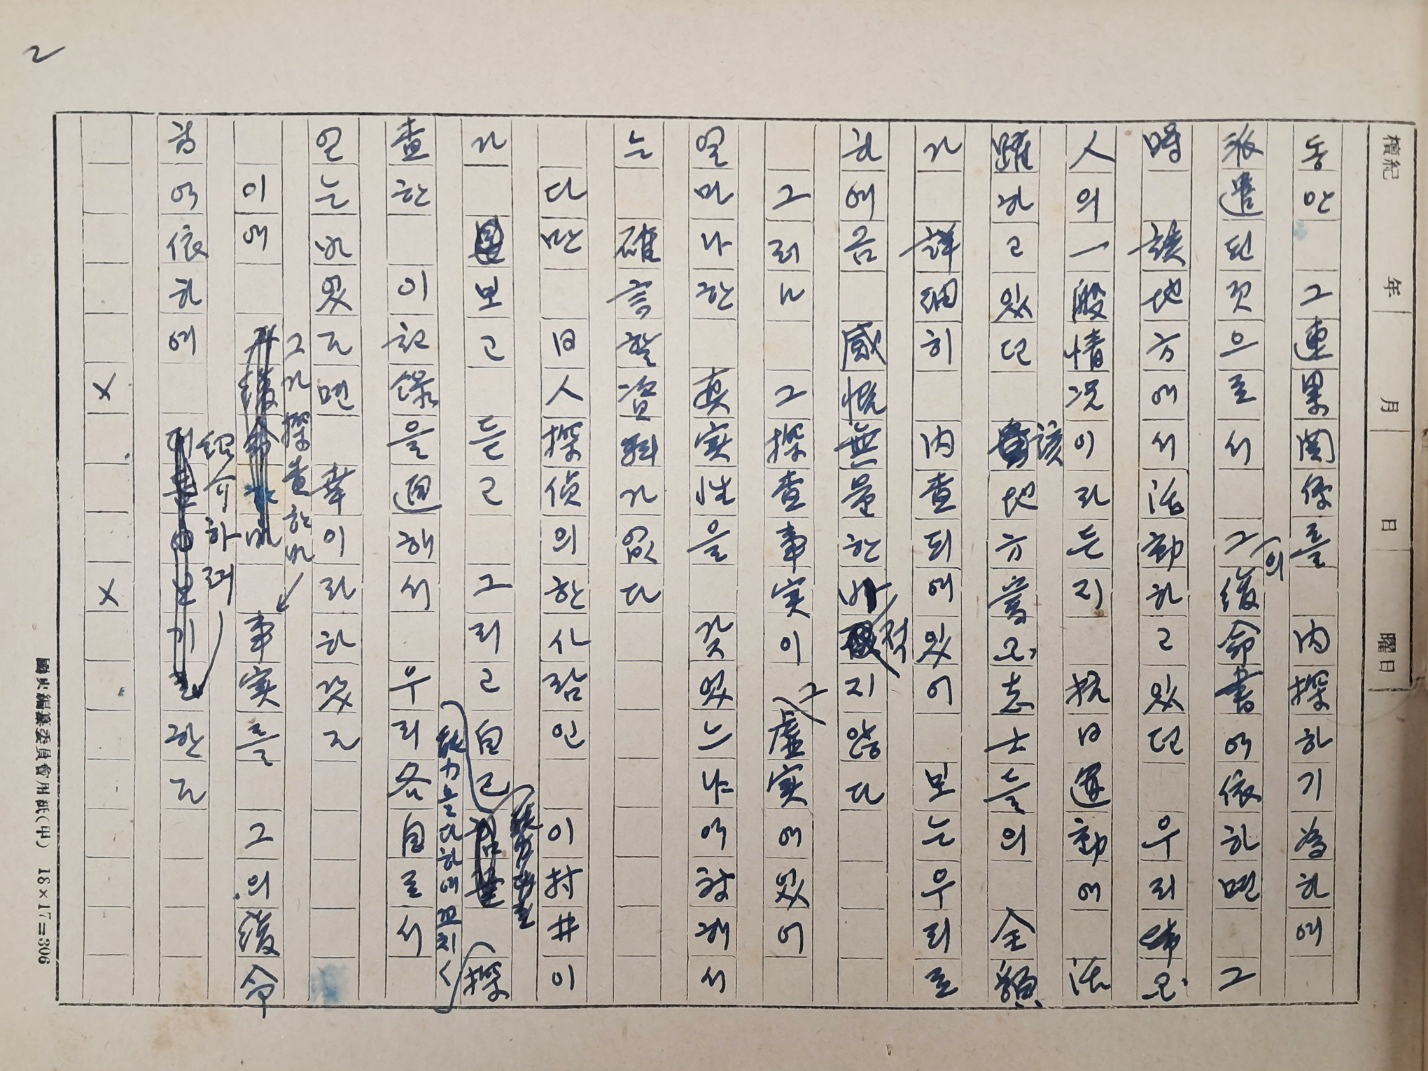 2
檀紀 年 月 日 曜日
동안 그 連累関係를 內探하기 爲하여
派遣된 것으로서 그의 復命書에 依하면 그
時 該地方에서 活動하고 있던 우리
人의 一般情況이라든지 抗日運動에 活
躍하고 있던 該地方 志士들의 全貌
가 詳細히 內査되어 있어 보는 우리로
하여금 感慨無量한 바 적지 않다
그러나 그 探查事実이 그 虛実에 있어
얼마나한 眞実性을 갖었느냐에 対해서
는 確言할 資料가 없다
다만 日人探偵의 한사람인 이 村井이
가 보고 듣고 그리고 自己 能力을 다하여 探
查한 이 記錄을 通해서 우리 各自로서
얻는 바 있다면 幸이라 하겠다
이에 그가 探查한 바 事実을 그의 復命
書에 依하여 紹介하려 한다
× ×
國史編纂委員會用紙(甲) 18×17=306